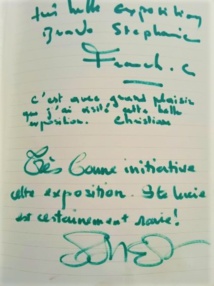 très belle exposition
Bravo Stephanie
Franck. C
c'est avec grand plaisir
que j'ai visité cette belle
exposition. Christiane
Très bonne initiative
cette exposition. Ste Lucie
est certainement ravie!